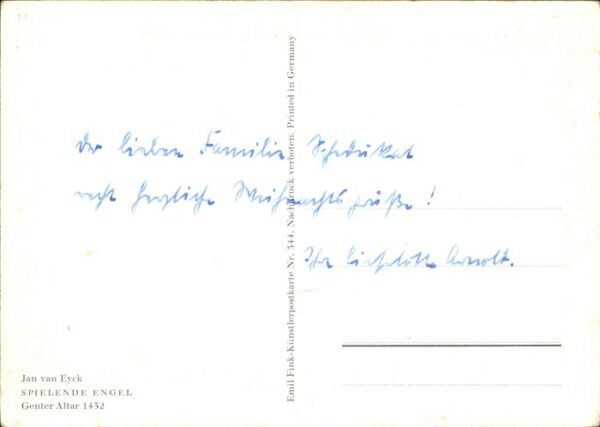 Der lieben Familie Schedukat
recht herzliche Weihnachtsgrüße!
Ihre Lieselotte Arnold.
Emil Fink-Künstlerpostkarte Nr. 344. Nachdruck verboten. Printed in Germany
Jan van Eyck
SPIELENDE ENGEL
Genter Altar 1432